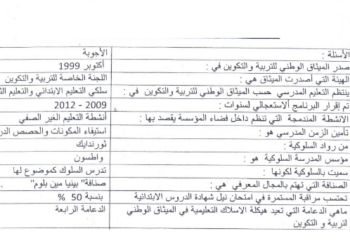 الأسئلة : الأجوبة
صدر الميثاق الوطني للتربية والتكوين في : أكتوبر 1999
الهيئة التي أصدرت الميثاق هي : اللجنة الخاصة للتربية والتكوين
ينتظم التعليم المدرسي حسب الميثاق الوطني للتربية والتكوين في : سلكي التعليم الابتدائي والتعليم
تم إقرار البرنامج الاستعجالي لسنوات : 2009 - 2012
الانشطة المندمجة التي تنظم داخل فضاء المؤسسة يقصد بها : أنشطة التعليم الغير الصفي
تأمين الزمن المدرسي هو : استيفاء المكونات والحصص
من رواد السلوكية : ثورندايك
مؤسس المدرسة السلوكية هو : واطسون
سميت بالسلوكية لكونها : تدرس السلوك كموضوع لها
الصنافة التي تهتم بالمجال المعرفي هي : صنافة" بينيا مين بلوم"
تحتسب مراقبة المستمرة في امتحان نيل شهادة الدروس الابتدائية بنسبة 50 %
ماهي الدعامة التي تعيد هيكلة الاسلاك التعليمية في الميثاق الوطني الدعامة الرابعة
لتربية و التكوين